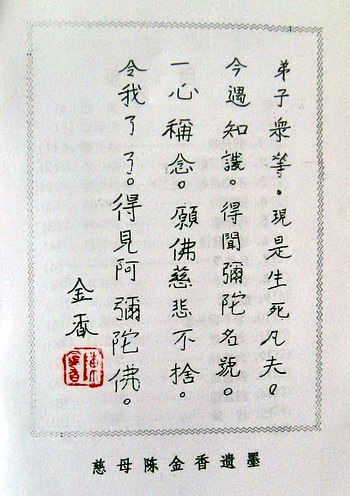 弟子衆等。現是生死凡夫。
今遇知識。得聞彌陀名號。
一心稱念。願佛慈悲不捨。
令我了了。得見阿彌陀佛。
金香
慈母陳金香遺墨